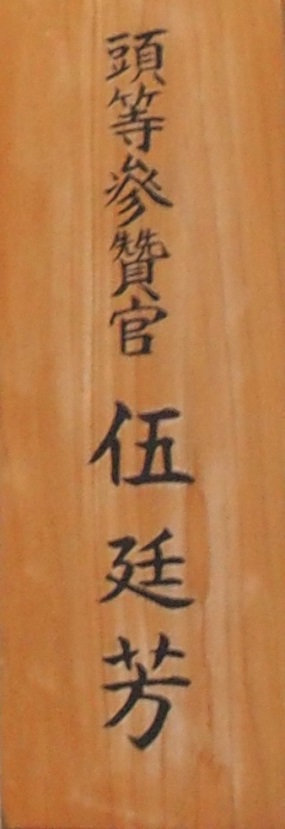 頭等參贊官 伍廷芳